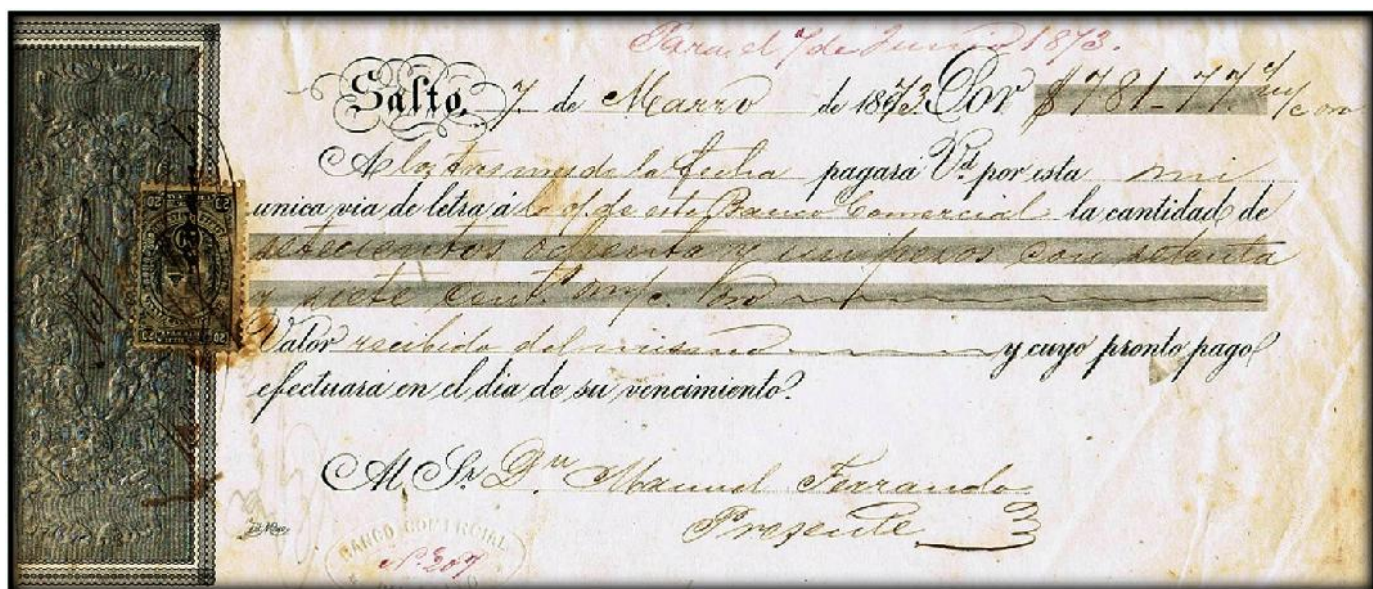 Para el 7 de Junio 1873.
Salto, 7 de Marzo de 1873. Por $781-77 m/c oro
A los tres meses de la fecha pagará Vd. por esta mi
unica via de letra á la o/. de este Banco Comercial la cantidad de
setecientos ochenta y un pesos con setenta
y siete cent. m/c. oro
Valor recibido del mismo y cuyo pronto pago
efectuará en el dia de su vencimiento.
Al Sr. Dn. Manuel Ferrando
Presente
BANCO COMERCIAL
N. 209
20
20
20
20